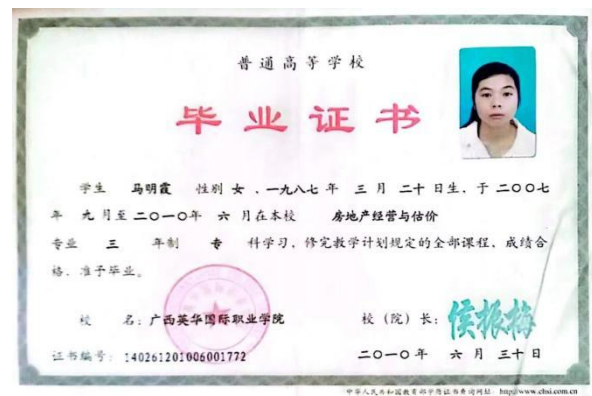 普通高等学校
毕业证书
学生 马明霞 性别 女 、一九八七 年 三 月 二十 日生、于 二〇〇七
年 九 月至 二〇一〇年 六 月在本校 房地产经营与估价
专业 三 年制 专 科学习、修完教学计划规定的全部课程、成绩合
格、准予毕业。
校 名: 广西英华国际职业学院 校(院)长: 侯振梅
证书编号: 140261201006001772 二〇一〇 年 六 月 三十 日
中华人民共和国教育部学历证书查询网址: http://www.chsi.com.cn